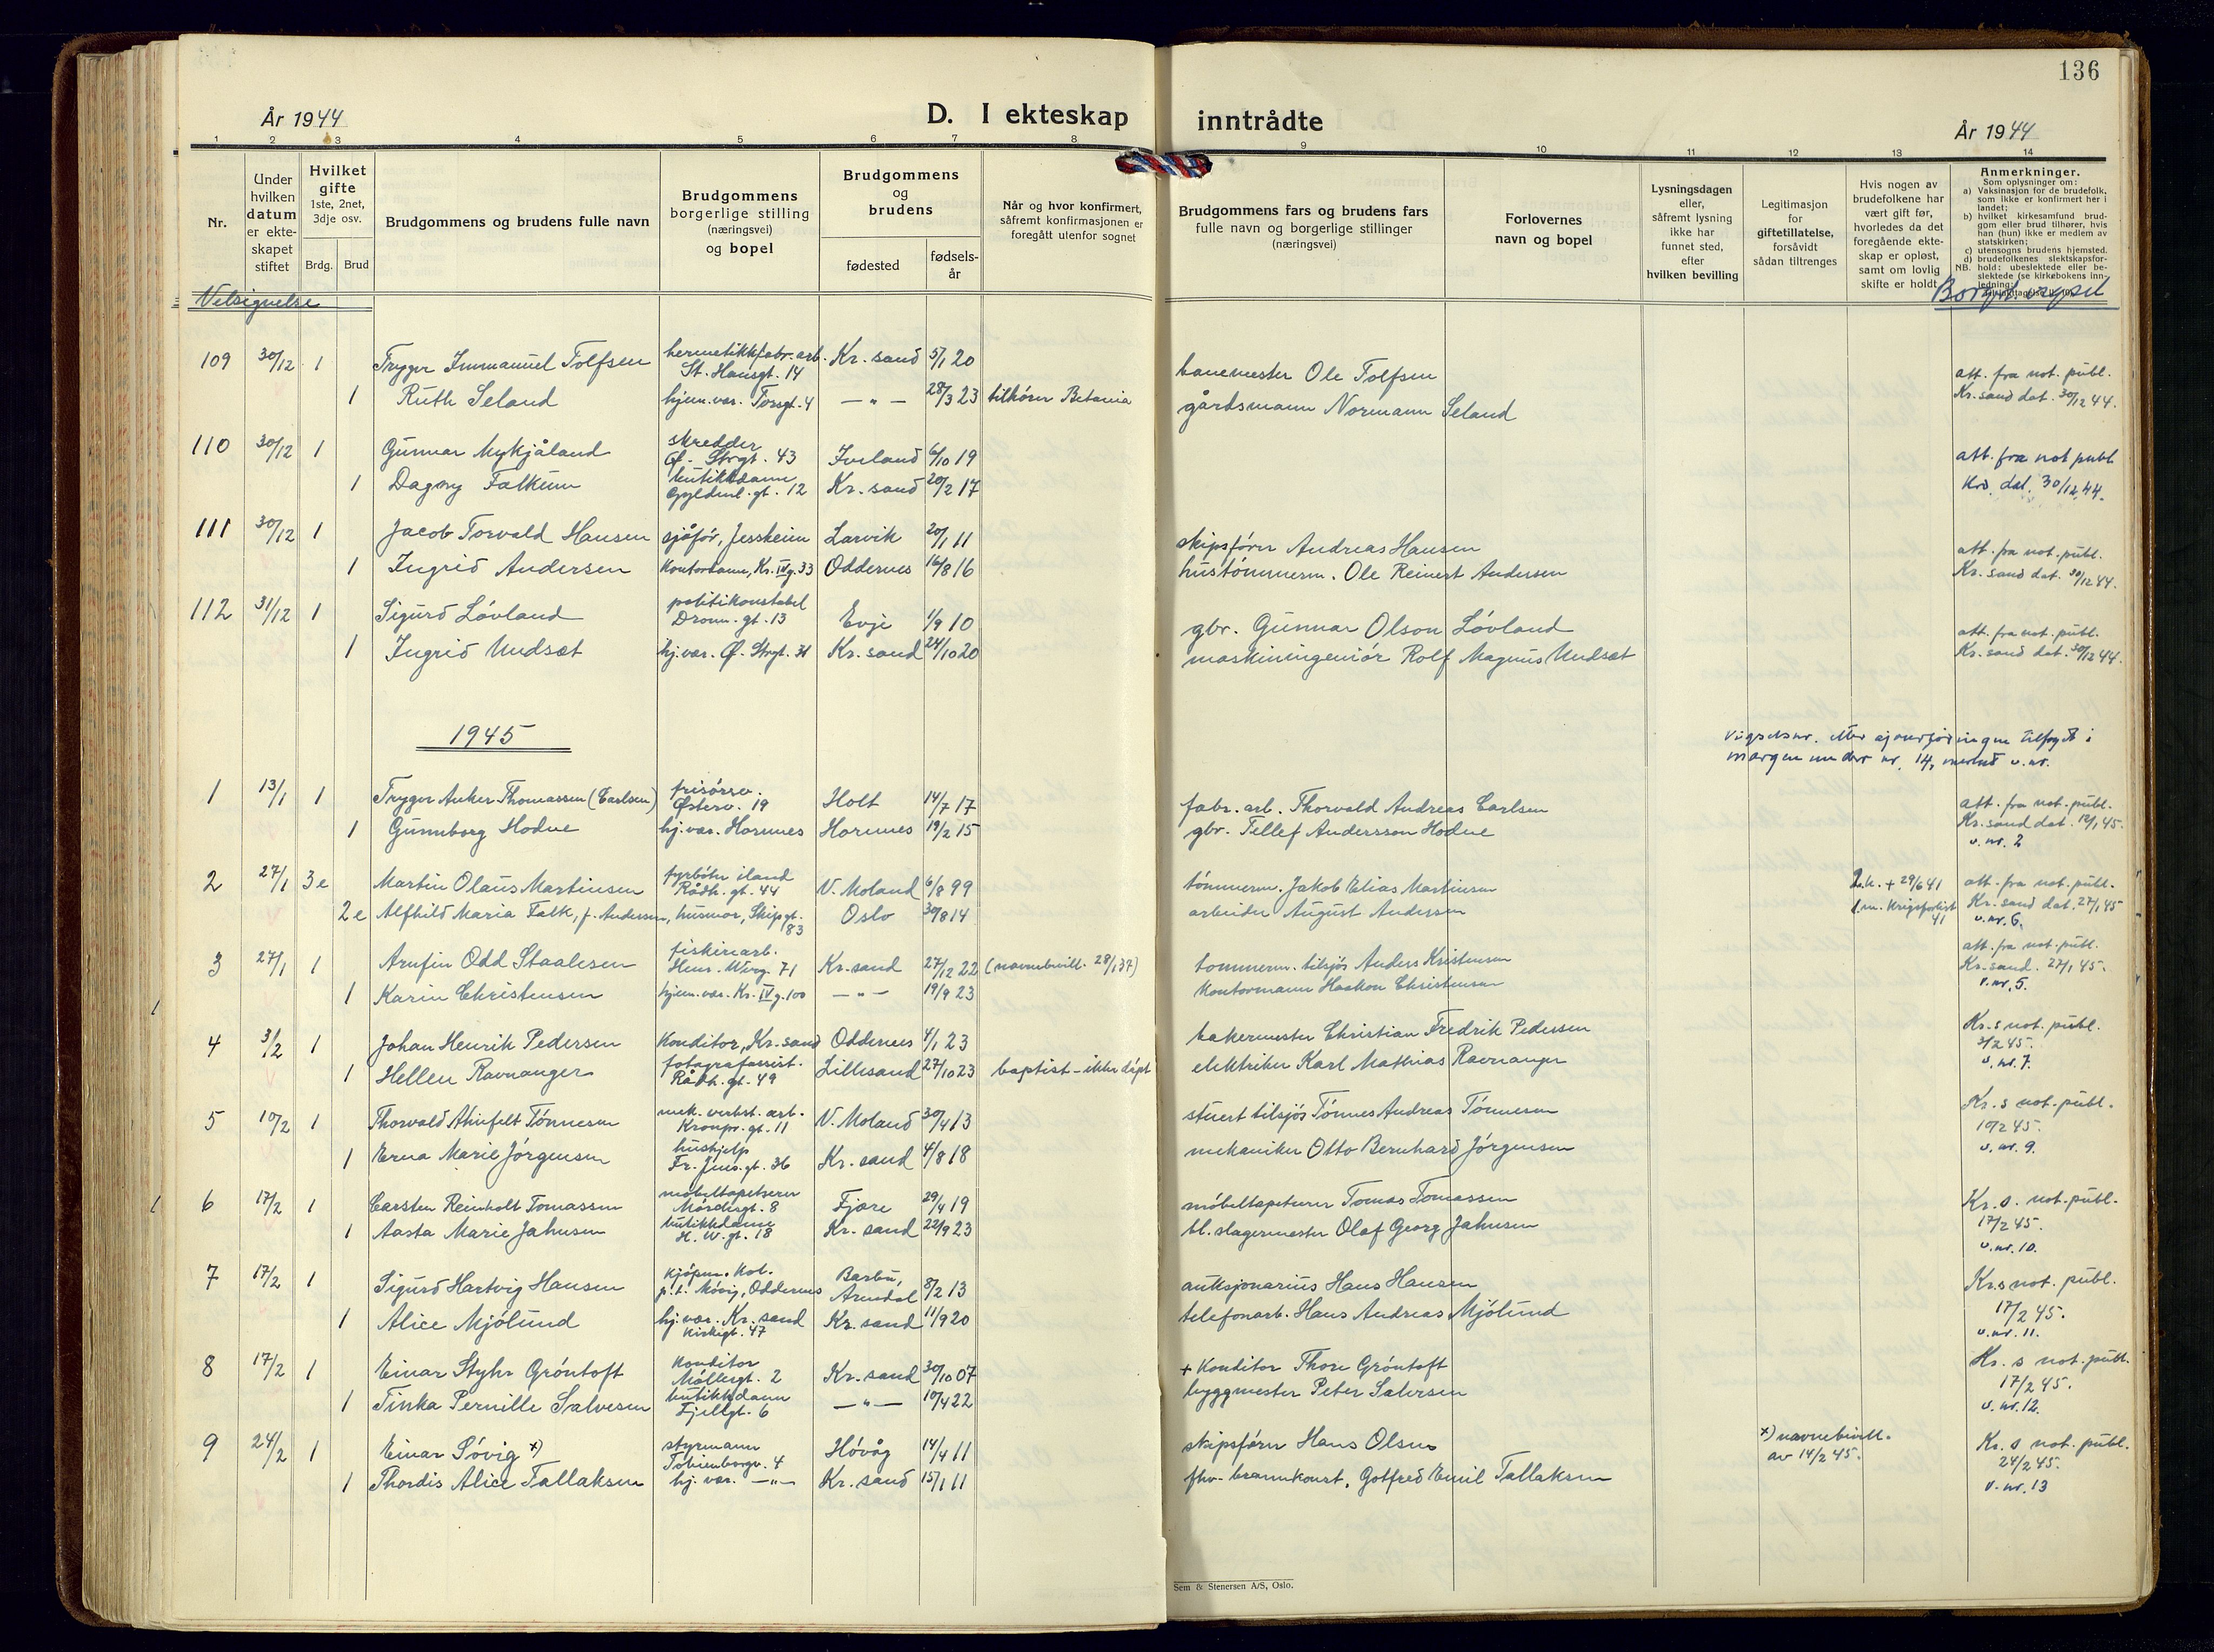 136
År 1944
D. I ekteskap inntrådte
År 1944
1 2 3 4 5 6 7 8 9 10 11 12 13 14
Nr.
Under hvilken datum er ekteskapet stiftet
Hvilket gifte 1ste, 2net, 3dje osv.
Brdg. Brud
Brudgommens og brudens fulle navn
Brudgommens borgerlige stilling (næringsvei) og bopel
Brudgommens og brudens
fødested
fødselsår
Når og hvor konfirmert, såfremt konfirmasjonen er foregått utenfor sognet
Brudgommens fars og brudens fars fulle navn og borgerlige stillinger (næringsvei)
Forlovernes navn og bopel
Lysningsdagen eller, såfremt lysning ikke har funnet sted, efter hvilken bevilling
Legitimasjon for giftetillatelse, forsåvidt sådan tiltrenges
Hvis nogen av brudefolkene har vært gift før, hvorledes da det foregående ekteskap er opløst, samt om lovlig skifte er holdt
Anmerkninger.
Som oplysninger om:
a) Vaksinasjon for de brudefolk, som ikke er konfirmert her i landet;
b) hvilket kirkesamfund brudgom eller brud tilhører, hvis han (hun) ikke er medlem av statskirken;
c) utensogns brudens hjemsted.
d) brudefolkenes slektskapsforhold: ubeslektede eller beslektede (se kirkebokens innledning;
NB.
Velsignelse
Borgerl. vigsel
109 30/12 1 Trygve Immanuel Tolfsen hermetikkfabr. arb. St. Hansgt. 14 Kr. sand 5/1 20 banemester Ole Tolfsen att. fra not. publ.
1 Ruth Seland hjem.vær. Torsgt. 4 — " — 28/3 23 tilhører Betania gårdsmann Normann Seland Kr. sand dat. 30/12 44.
110 30/12 1 Gunnar Mykjåland skredder Ø. Strgt. 43 Iveland 6/10 19 att. fra not publ
1 Dagny Falkum butikkdame Gyldenl. gt. 12 Kr. sand 20/2 17 Krs. dat. 30/12 44.
111 30/12 1 Jacob Torvald Hansen sjåfør, Jessheim Larvik 20/1 11 skipsfører Andreas Hansen att. fra not. publ.
1 Ingrid Andersen kontordame, Kr. IV g. 33 Oddernes 16/8 16 hustømmerm. Ole Reinert Andersen Kr. sand dat. 30/12 44.
112 31/12 1 Sigurd Løvland politikonstabel Dronn. gt. 13 Evje 1/9 10 gbr. Gunnar Olson Løvland att. fra not. publ.
1 Ingrid Undset hj. vær. Ø. Strgt. 31 Kr. sand 24/10 20 maskiningeniør Rolf Magnus Undset Kr. sand dat. 30/12 44.
1945
Vigselsnr. etter ajourføringen tilføyet i
margen under nr. 14, merket v.nr.
1 13/1 1 Trygve Anker Thomassen (Carlsen) frisørsv. Østerv. 19 Holt 14/7 17 fabr. arb. Thorvald Andreas Carlsen att. fra not. publ.
1 Gunnborg Hodne hj. vær. Hornnes Hornnes 19/2 15 gbr. Tellef Andersson Hodne Kr. sand dat. 12/1 45.
v. nr. 2
2 27/1 3e Martin Olaus Martinsen fyrbøter iland Rådh. gt. 44 V. Moland 6/8 99 tømmerm. Jakob Elias Martinsen 2.h. + 29/6 41 att. fra not. publ.
2e Alfhild Maria Falk, f. Andersen, husmor, Skipgt. 83 Oslo 30/8 14 arbeider August Andersen 1.m. krigsforlist 41 Kr. sand dat. 27/1 45
v. nr. 6.
3 27/1 1 Arnfin Odd Staalesen fiskeriarb. Henr. Werg. 71 Kr. sand 27/12 22 (navnebevill. 28/1 37) tømmerm. tilsjøs Anders Kristensen att. fra not. publ.
1 Karin Christensen hjem. vær. Kr. IV g. 100 — " — 19/9 23 kontormann Haakon Christensen Kr. sand. 27/1 45.
v. nr. 5.
4 3/2 1 Johan Henrik Pedersen konditor, Kr. sand Oddernes 4/1 23 bakermester Christian Fredrik Pedersen Kr. s not. publ.
1 Hellen Ravnanger fotografassist. Rådh. gt. 49 Lillesand 27/10 23 baptist - ikke døpt elektriker Karl Mathias Ravnanger 3/2 45.
v. nr. 7.
5 10/2 1 Thorvald Tønnesen mek. verkst. arb. Kronpr. gt. 11 V. Moland 30/4 13 stuert tilsjøs Tønnes Andreas Tønnesen Kr. s not. publ.
1 Erna Marie Jørgensen hushjelp Fr. Jens. gt. 36 Kr. sand 4/8 18 mekaniker Otto Bernhard Jørgensen 10/2 45.
v. nr. 9.
6 17/2 1 Carsten Reinholt Tomassen møbeltapetserer gt. 8 Fjære 29/4 19 møbeltapetserer Tomas Tomassen Kr. s. not. publ.
1 Aasta Marie Jahnsen butikkdame H. W. gt. 18 Kr. sand 22/9 23 bl. slagermester Olaf Georg Jahnsen 17/2 45.
v. nr. 10.
7 17/2 1 Sigurd Hartvig Hansen kjøpm. Kol. p.t. Møvig, Oddernes Barbu, Arendal 8/2 13 auksjonarius Hans Hansen Kr. s not. publ.
1 Alice Mjølund hj. vær. Kr. sand Kirkegt. 47 Kr. sand 11/9 20 telefonarb. Hans Andreas Mjølund 17/2 45.
v. nr. 11.
8 17/2 1 Einar Styhr Grøntoft konditor Møllergt. 2 Kr. sand 30/10 07 + konditor Thore Grøntoft Kr. s not. publ.
1 Tinka Pernille Salvesen butikkdame Fjellgt. 6 — " — 10/4 22 byggmester Peter Salvesen 17/2 45.
v. nr. 12.
9 24/2 1 Einar Søvig x) styrmann Tobienborgv. 4 Høvåg 14/4 11 skipsfører Hans Olsen x) navnebevill. av 14/2 45. Kr. s not. publ.
1 Thordis Alice Tallaksen hj. vær. — " — Kr. sand 15/1 11 fhv. brannkonst. Gotfred Emil Tallaksen 24/2 45.
v. nr. 13
Sem & Stenersen A/S, Oslo.